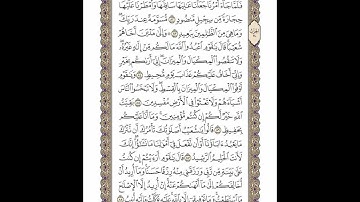 فَلَمَّا جَآءَ أَمْرُنَا جَعَلْنَا عَٰلِيَهَا سَافِلَهَا وَأَمْطَرْنَا عَلَيْهَا
حِجَارَةً مِّن سِجِّيلٍ مَّنضُودٍ ٨٢ مُّسَوَّمَةً عِندَ رَبِّكَۖ
وَمَا هِىَ مِنَ ٱلظَّٰلِمِينَ بِبَعِيدٍ ٨٣ ۞ وَإِلَىٰ مَدْيَنَ أَخَاهُمْ
شُعَيْبًاۚ قَالَ يَٰقَوْمِ ٱعْبُدُوا۟ ٱللَّهَ مَا لَكُم مِّنْ إِلَٰهٍ غَيْرُهُۥۖ
وَلَا تَنقُصُوا۟ ٱلْمِكْيَالَ وَٱلْمِيزَانَۚ إِنِّىٓ أَرَىٰكُم بِخَيْرٍ
وَإِنِّىٓ أَخَافُ عَلَيْكُمْ عَذَابَ يَوْمٍ مُّحِيطٍ ٨٤ وَيَٰقَوْمِ
أَوْفُوا۟ ٱلْمِكْيَالَ وَٱلْمِيزَانَ بِٱلْقِسْطِۖ وَلَا تَبْخَسُوا۟ ٱلنَّاسَ
أَشْيَآءَهُمْ وَلَا تَعْثَوْا۟ فِى ٱلْأَرْضِ مُفْسِدِينَ ٨٥ بَقِيَّتُ
ٱللَّهِ خَيْرٌ لَّكُمْ إِن كُنتُم مُّؤْمِنِينَۚ وَمَآ أَنَا۠ عَلَيْكُم
بِحَفِيظٍ ٨٦ قَالُوا۟ يَٰشُعَيْبُ أَصَلَوٰتُكَ تَأْمُرُكَ أَن نَّتْرُكَ
مَا يَعْبُدُ ءَابَآؤُنَآ أَوْ أَن نَّفْعَلَ فِىٓ أَمْوَٰلِنَا مَا نَشَٰٓؤُا۟ۖ إِنَّكَ
لَأَنتَ ٱلْحَلِيمُ ٱلرَّشِيدُ ٨٧ قَالَ يَٰقَوْمِ أَرَءَيْتُمْ إِن كُنتُ
عَلَىٰ بَيِّنَةٍ مِّن رَّبِّى وَرَزَقَنِى مِنْهُ رِزْقًا حَسَنًاۚ وَمَآ أُرِيدُ أَنْ
أُخَالِفَكُمْ إِلَىٰ مَآ أَنْهَىٰكُمْ عَنْهُۚ إِنْ أُرِيدُ إِلَّا ٱلْإِصْلَٰحَ
مَا ٱسْتَطَعْتُۚ وَمَا تَوْفِيقِىٓ إِلَّا بِٱللَّهِۚ عَلَيْهِ تَوَكَّلْتُ وَإِلَيْهِ أُنِيبُ ٨٨